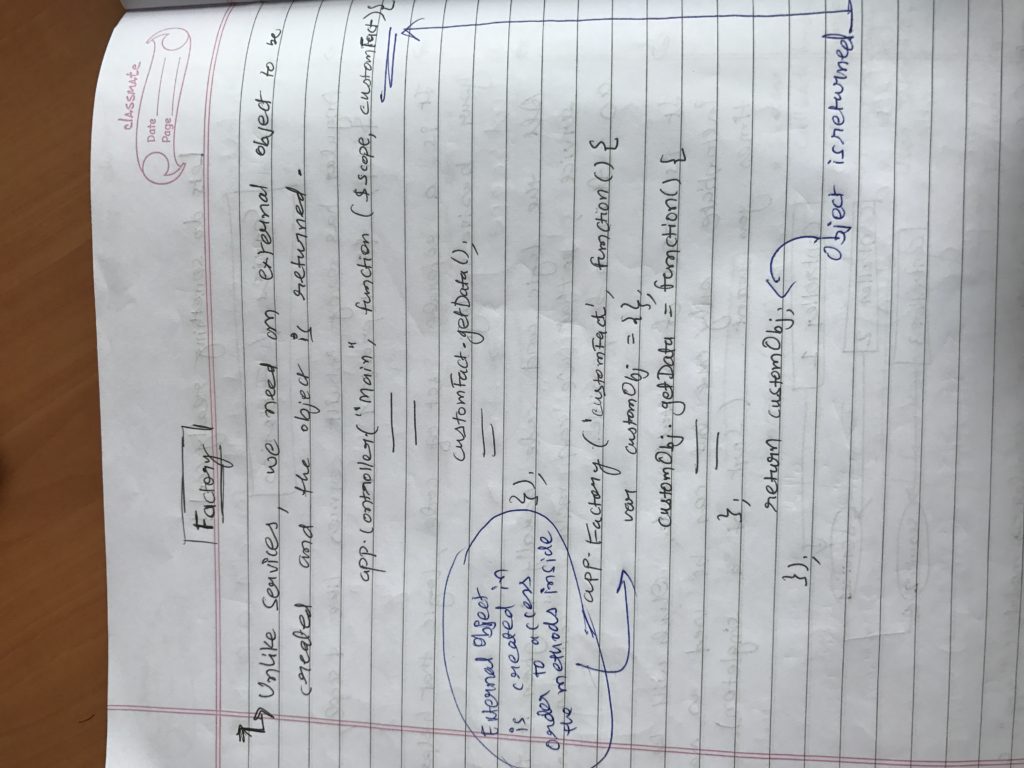 classmate
Date
Page
Factory
Unlike Services, we need an external object to be
created and the object is returned.
app.controller("Main", function ($scope, customFact){
customFact.getData();
});
External Object
is created in
order to access
the methods inside
app.Factory ('customFact', function() {
var customObj = {};
customObj.getData = function() {
};
return customObj;
});
Object is returned